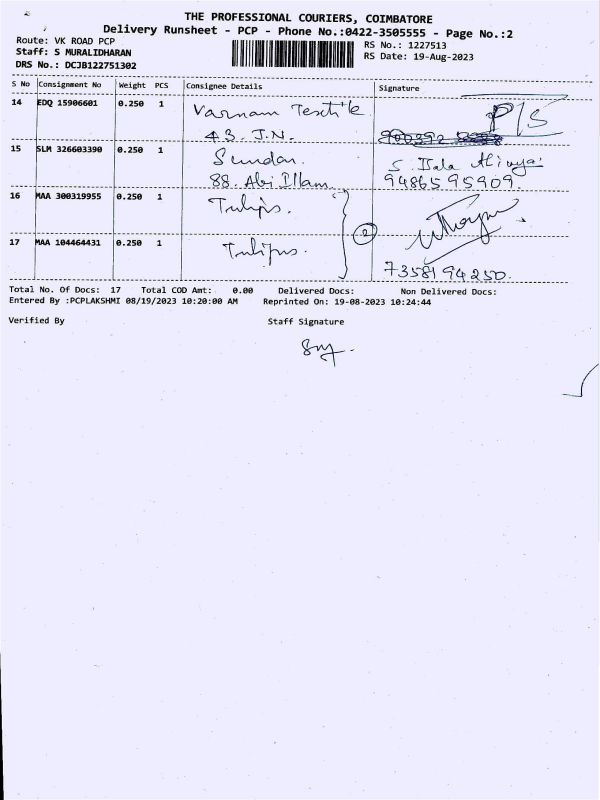 THE PROFESSIONAL COURIERS, COIMBATORE
Delivery Runsheet - PCP - Phone No.:0422-3505555 - Page No.:2
Route: VK ROAD PCP
Staff: S MURALIDHARAN
DRS No.: DCJB122751302
RS No.: 1227513
RS Date: 19-Aug-2023
S No Consignment No Weight PCS Consignee Details Signature
14 EDQ 15906601 0.250 1 Varnam P/S
43. J.N.
15 SLM 326603390 0.250 1 Sundar. S. Bala
88. Abi Illam. 9486595909.
16 MAA 300319955 0.250 1 Tulips.
2
17 MAA 104464431 0.250 1 Tulips.
7358194250.
Total No. Of Docs: 17 Total COD Amt: 0.00 Delivered Docs: Non Delivered Docs:
Entered By :PCPLAKSHMI 08/19/2023 10:20:00 AM Reprinted On: 19-08-2023 10:24:44
Verified By Staff Signature